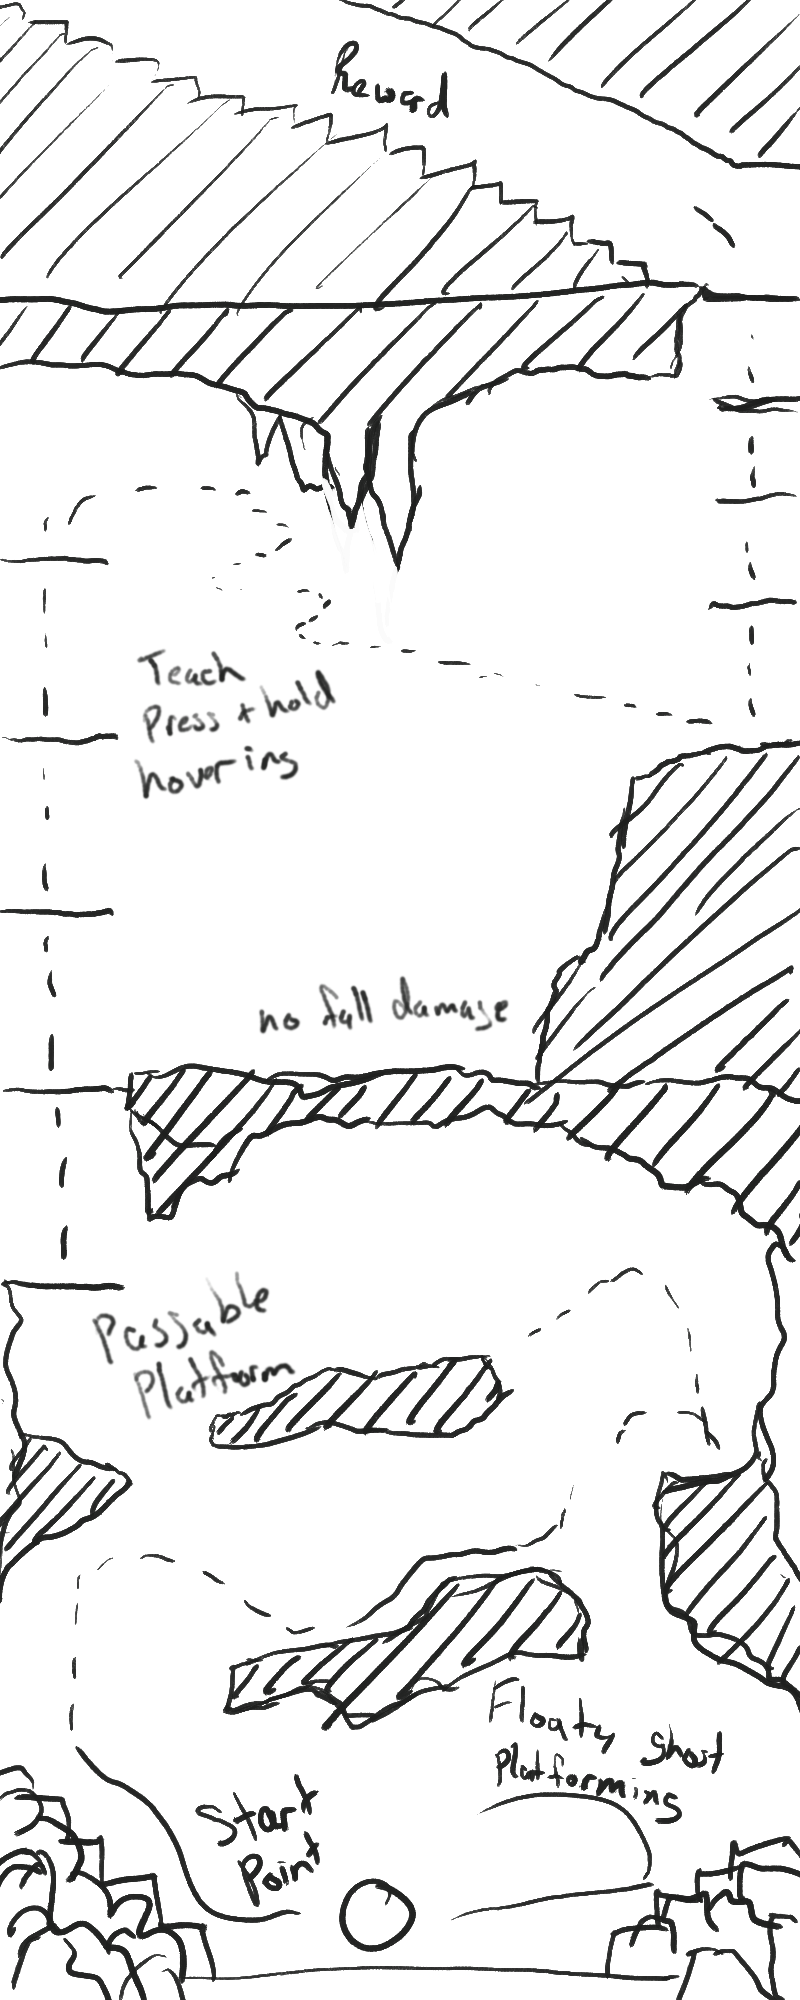 Reward
Teach
Press + hold
hovering
no fall damage
Passable
Platform
Floaty ghost
Platforming
Start
Point